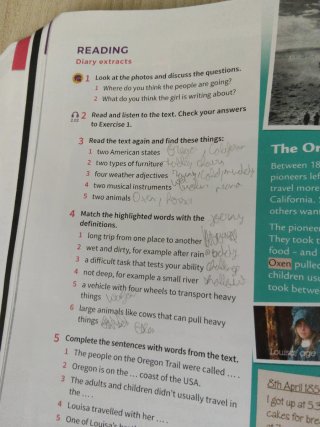 READING
Diary extracts
1 Look at the photos and discuss the questions.
1 Where do you think the people are going?
2 What do you think the girl is writing about?
2 Read and listen to the text. Check your answers
to Exercise 1.
3 Read the text again and find these things:
1 two American states
2 two types of furniture
3 four weather adjectives
4 two musical instruments piano
5 two animals Oxen,
4 Match the highlighted words with the
definitions.
1 long trip from one place to another
2 wet and dirty, for example after rain
3 a difficult task that tests your ability
4 not deep, for example a small river shallow
5 a vehicle with four wheels to transport heavy
things
6 large animals like cows that can pull heavy
things
5 Complete the sentences with words from the text.
1 The people on the Oregon Trail were called ....
2 Oregon is on the ... coast of the USA.
3 The adults and children didn't usually travel in
the ....
4 Louisa travelled with her ....
5 One of Louisa's
The Or
Between 18
pioneers lef
travel more
California.
others want
The pioneer
They took t
food – and
Oxen pulled
children usu
took betwe
Louisa, age
8th April 185
I got up at 5.3
cakes for brea